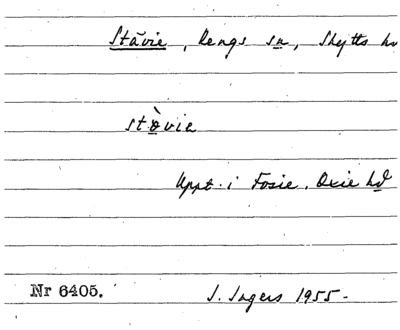 Stävie, Rengs sn, Skytts hd
stòvie
Uppt. i Fosie, Oxie hd
Nr 6405. J. Ingers 1955-